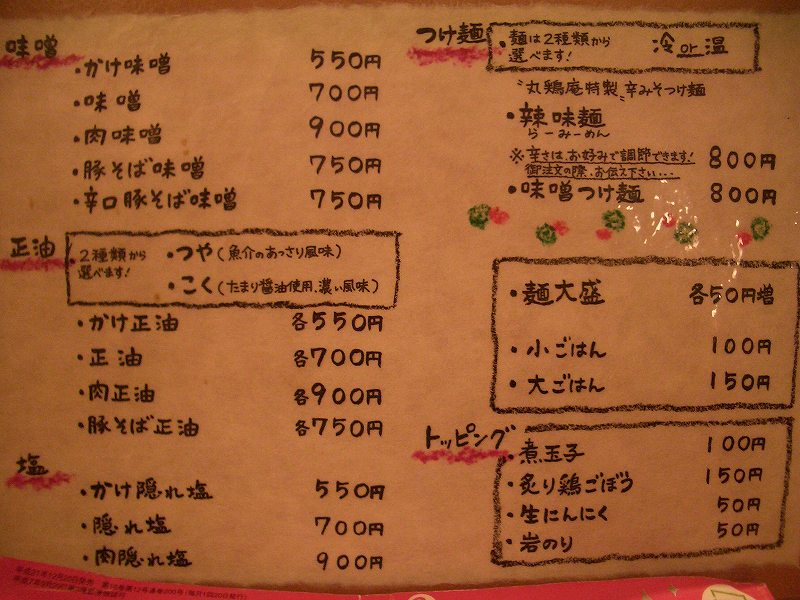 味噌
・かけ味噌 550円
・味噌 700円
・肉味噌 900円
・豚そば味噌 750円
・辛口豚そば味噌 750円
正油
2種類から
選べます!
・つや(魚介のあっさり風味)
・こく(たまり醤油使用、濃い風味)
・かけ正油 各550円
・正油 各700円
・肉正油 各900円
・豚そば正油 各750円
塩
・かけ隠れ塩 550円
・隠れ塩 700円
・肉隠れ塩 900円
つけ麺
・麺は2種類から
選べます!
冷or温
"丸鶏庵特製"辛みそつけ麺
・辣味麺
らーみーめん
※辛さはお好みで調節できます!
御注文の際、お伝え下さい...
800円
・味噌つけ麺 800円
・麺大盛 各50円増
・小ごはん 100円
・大ごはん 150円
トッピング
・煮玉子 100円
・炙り鶏ごぼう 150円
・生にんにく 50円
・岩のり 50円